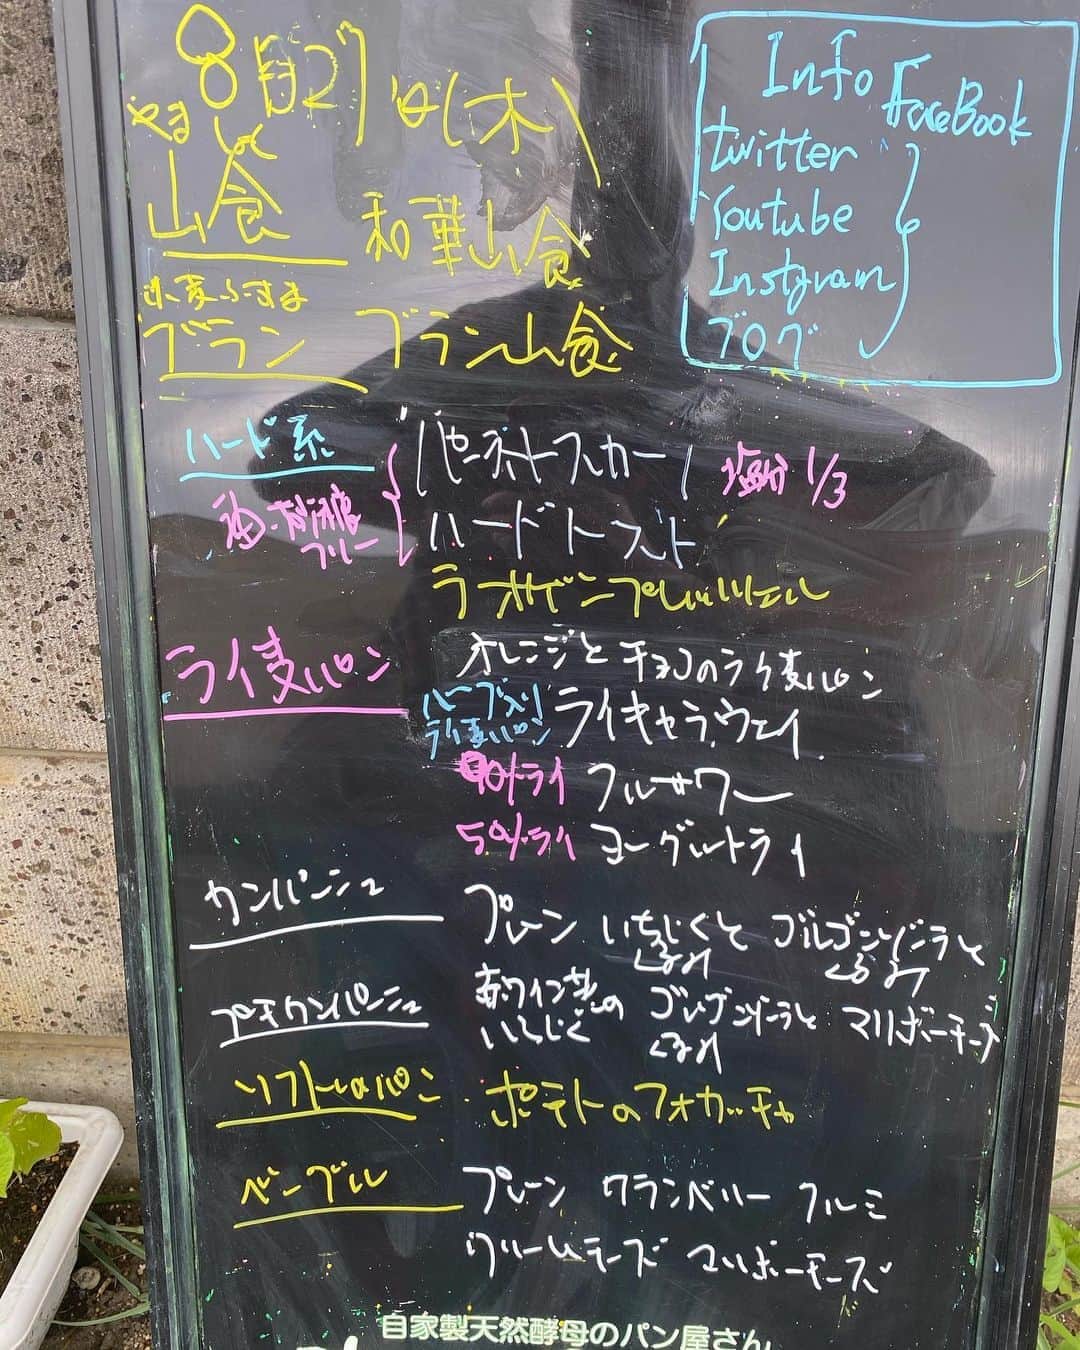 8月27日(木)
Info
FaceBook
twitter
Youtube
Instgram
ブログ
やま しょく
山食 和華山食
小麦ふすま
ブラン ブラン山食
ハード系 パーネトスカーノ 塩分1/3
油・砂糖フリー ハードトースト
ラオゲンプレッツェル
ライ麦パン オレンジとチョコのライ麦パン
ハーブ入りライ麦パン ライキャラウェイ
90%ライ フルサワー
50%ライ ヨーグルトライ
カンパーニュ プレーン いちじくとくるみ ゴルゴンゾーラとくるみ
プチカンパーニュ 赤ワイン煮のいちじく ゴルゴンゾーラとくるみ マリボーチーズ
ソフトなパン ポテトのフォカッチャ
ベーグル プレーン クランベリー フルミ
クリームチーズ マリボーチーズ
自家製天然酵母のパン屋さん